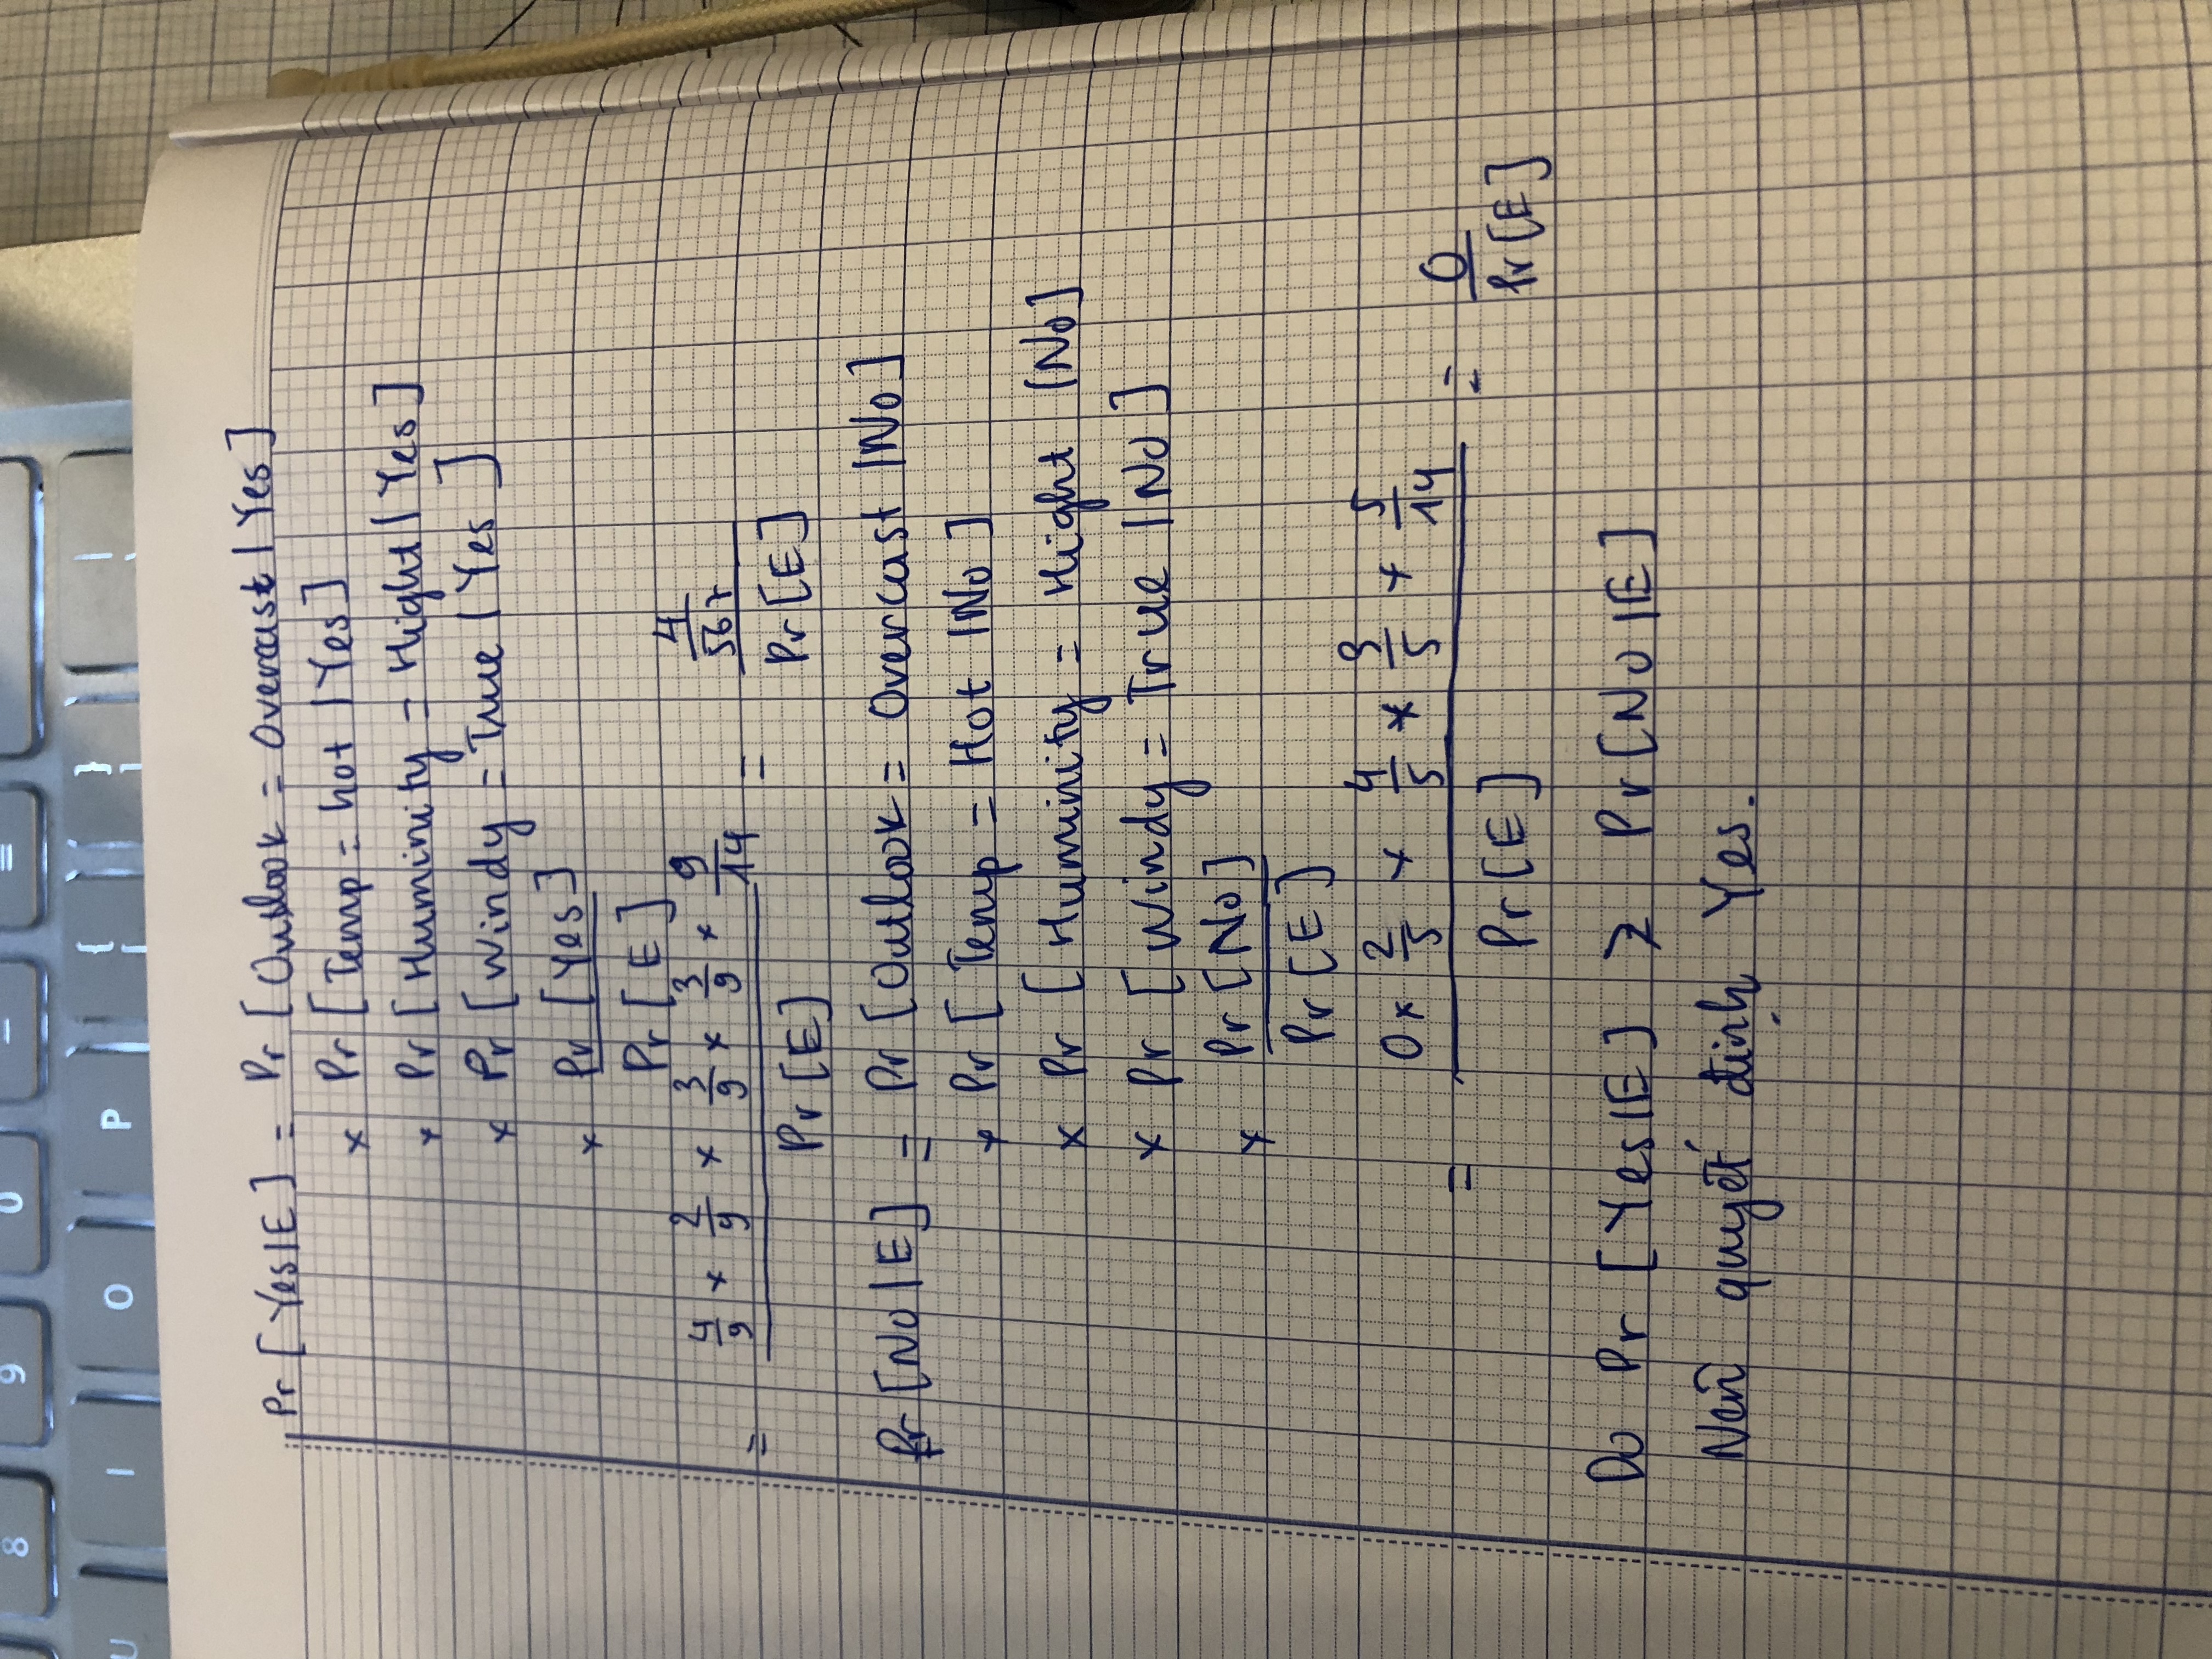 8 9 0 - =
U I O P { [ } ] | \
Pr [ Yes|E ] = Pr [ Outlook = Overcast | Yes ]
x Pr [ Temp = hot | Yes ]
x Pr [ Huminity = Hight | Yes ]
x Pr [ Windy = True | Yes ]
x Pr [ Yes ]
Pr [ E ]
= 4/9 x 2/9 x 3/9 x 3/9 x 9/14 = 4/567
Pr [ E ] Pr [ E ]
Pr [ No | E ] = Pr [ Outlook = Overcast | No ]
x Pr [ Temp = Hot | No ]
x Pr [ Huminity = Hight | No ]
x Pr [ Windy = True | No ]
x Pr [ No ]
Pr [ E ]
= 0 x 2/5 x 4/5 x 3/5 x 5/14 = 0
Pr [ E ] Pr [ E ]
Do Pr [ Yes|E ] > Pr [ No | E ]
Nên quyết định Yes.